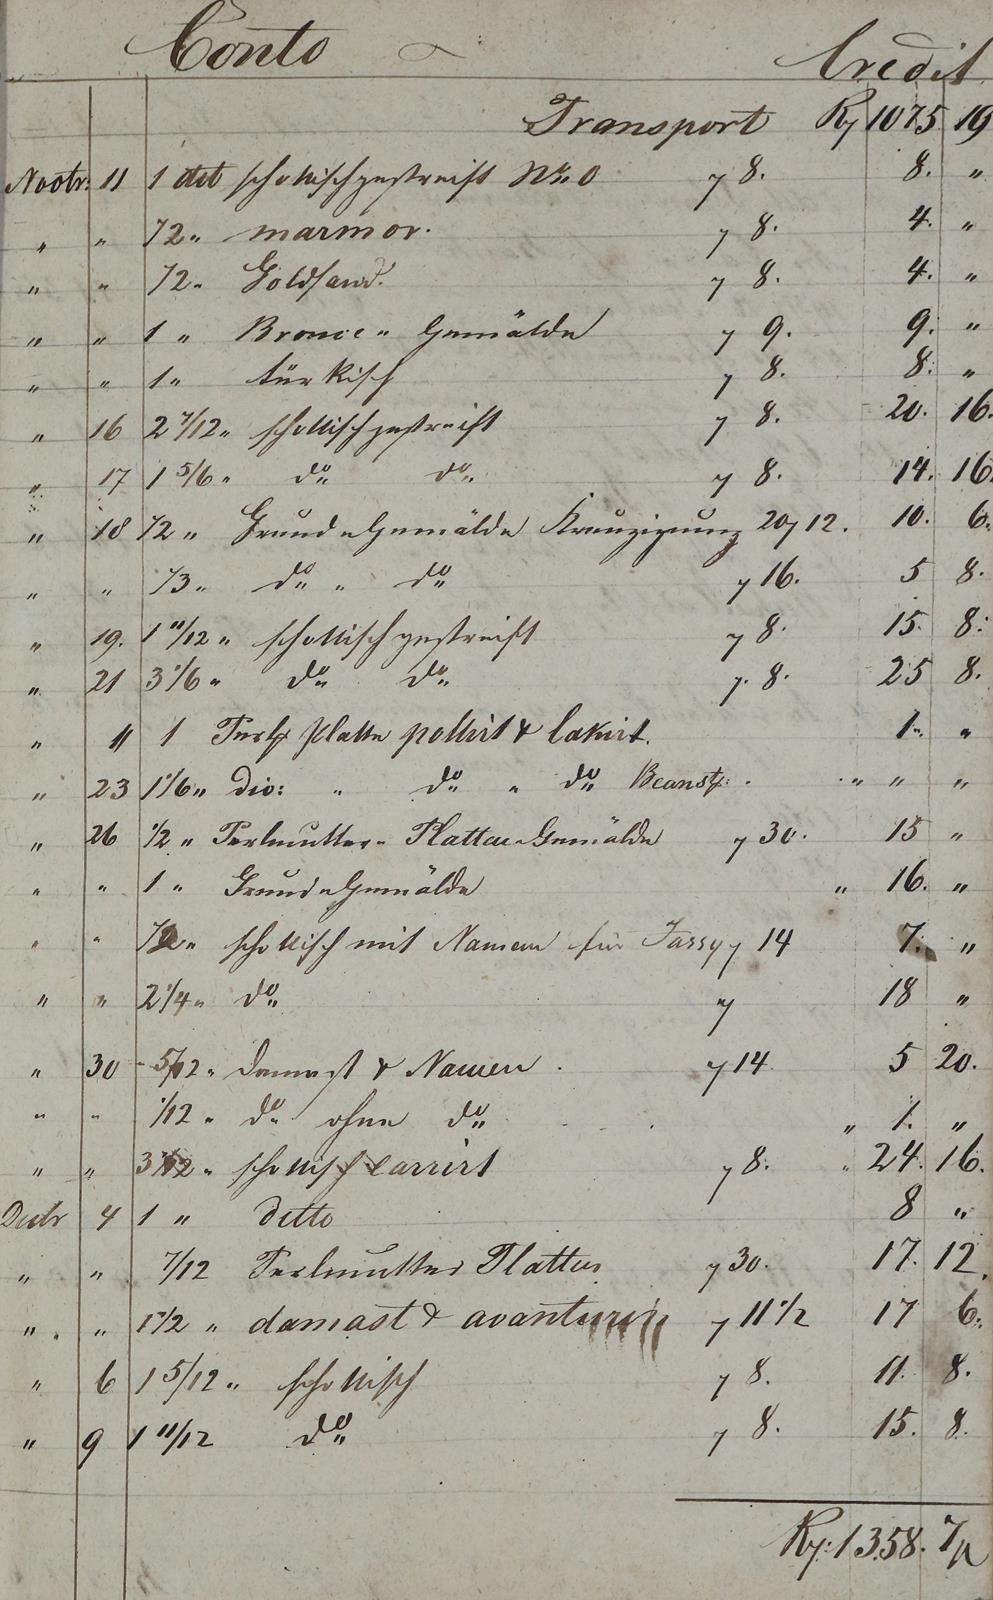 Conto Credit
Transport Rł 1075 19
Novbr: 11 1 dtt schottischgestreift No. 0 ą 8. 8. "
" " 1/2 " marmor. ą 8. 4. "
" " 1/2 " Goldsand. ą 8. 4. "
" " 1 " Bronce " Gemälde ą 9. 9. "
" " 1 " türkisch ą 8. 8. "
" 16 2 7/12 " schottischgestreift ą 8. 20. 16.
" 17 1 5/6 " do do ą 8. 14. 16.
" 18 1/2 " Grund " Gemälde Kreuzigung 20 ą 12. 10. 6.
" " 1/3 " do " do ą 16. 5 8.
" 19. 1 11/12 " schottischgestreift ą 8. 15. 8.
" 21 3 1/6 " do do ą 8. 25 8.
" 11 1 Platte pollirt & lakirt. 1. "
" 23 1 1/6 " div: " do " do " " "
" 26 1/2 " Perlmutter " Platten Gemälde ą 30. 15 "
" " 1 " Grund " Gemälde " 16. "
" " 1/2 " schottisch mit Namen für Jassy ą 14 7. "
" " 2 1/4 " do ą 18 "
" 30 5/12 " Damast & Namen ą 14 5 20.
" " 1/12 " do ohne do " 1. "
" " 3 1/12 " schottisch carrirt ą 8. " 24. 16.
Decbr 4 1 " ditto 8 "
" " 7/12 Perlmutter Platten ą 30. 17. 12.
" " 1 1/2 " damast & avanturin ą 11 1/2 17 6.
" 6 1 5/12 " schottisch ą 8. 11. 8.
" 9 1 11/12 do ą 8. 15. 8.
Rł: 1358. 7